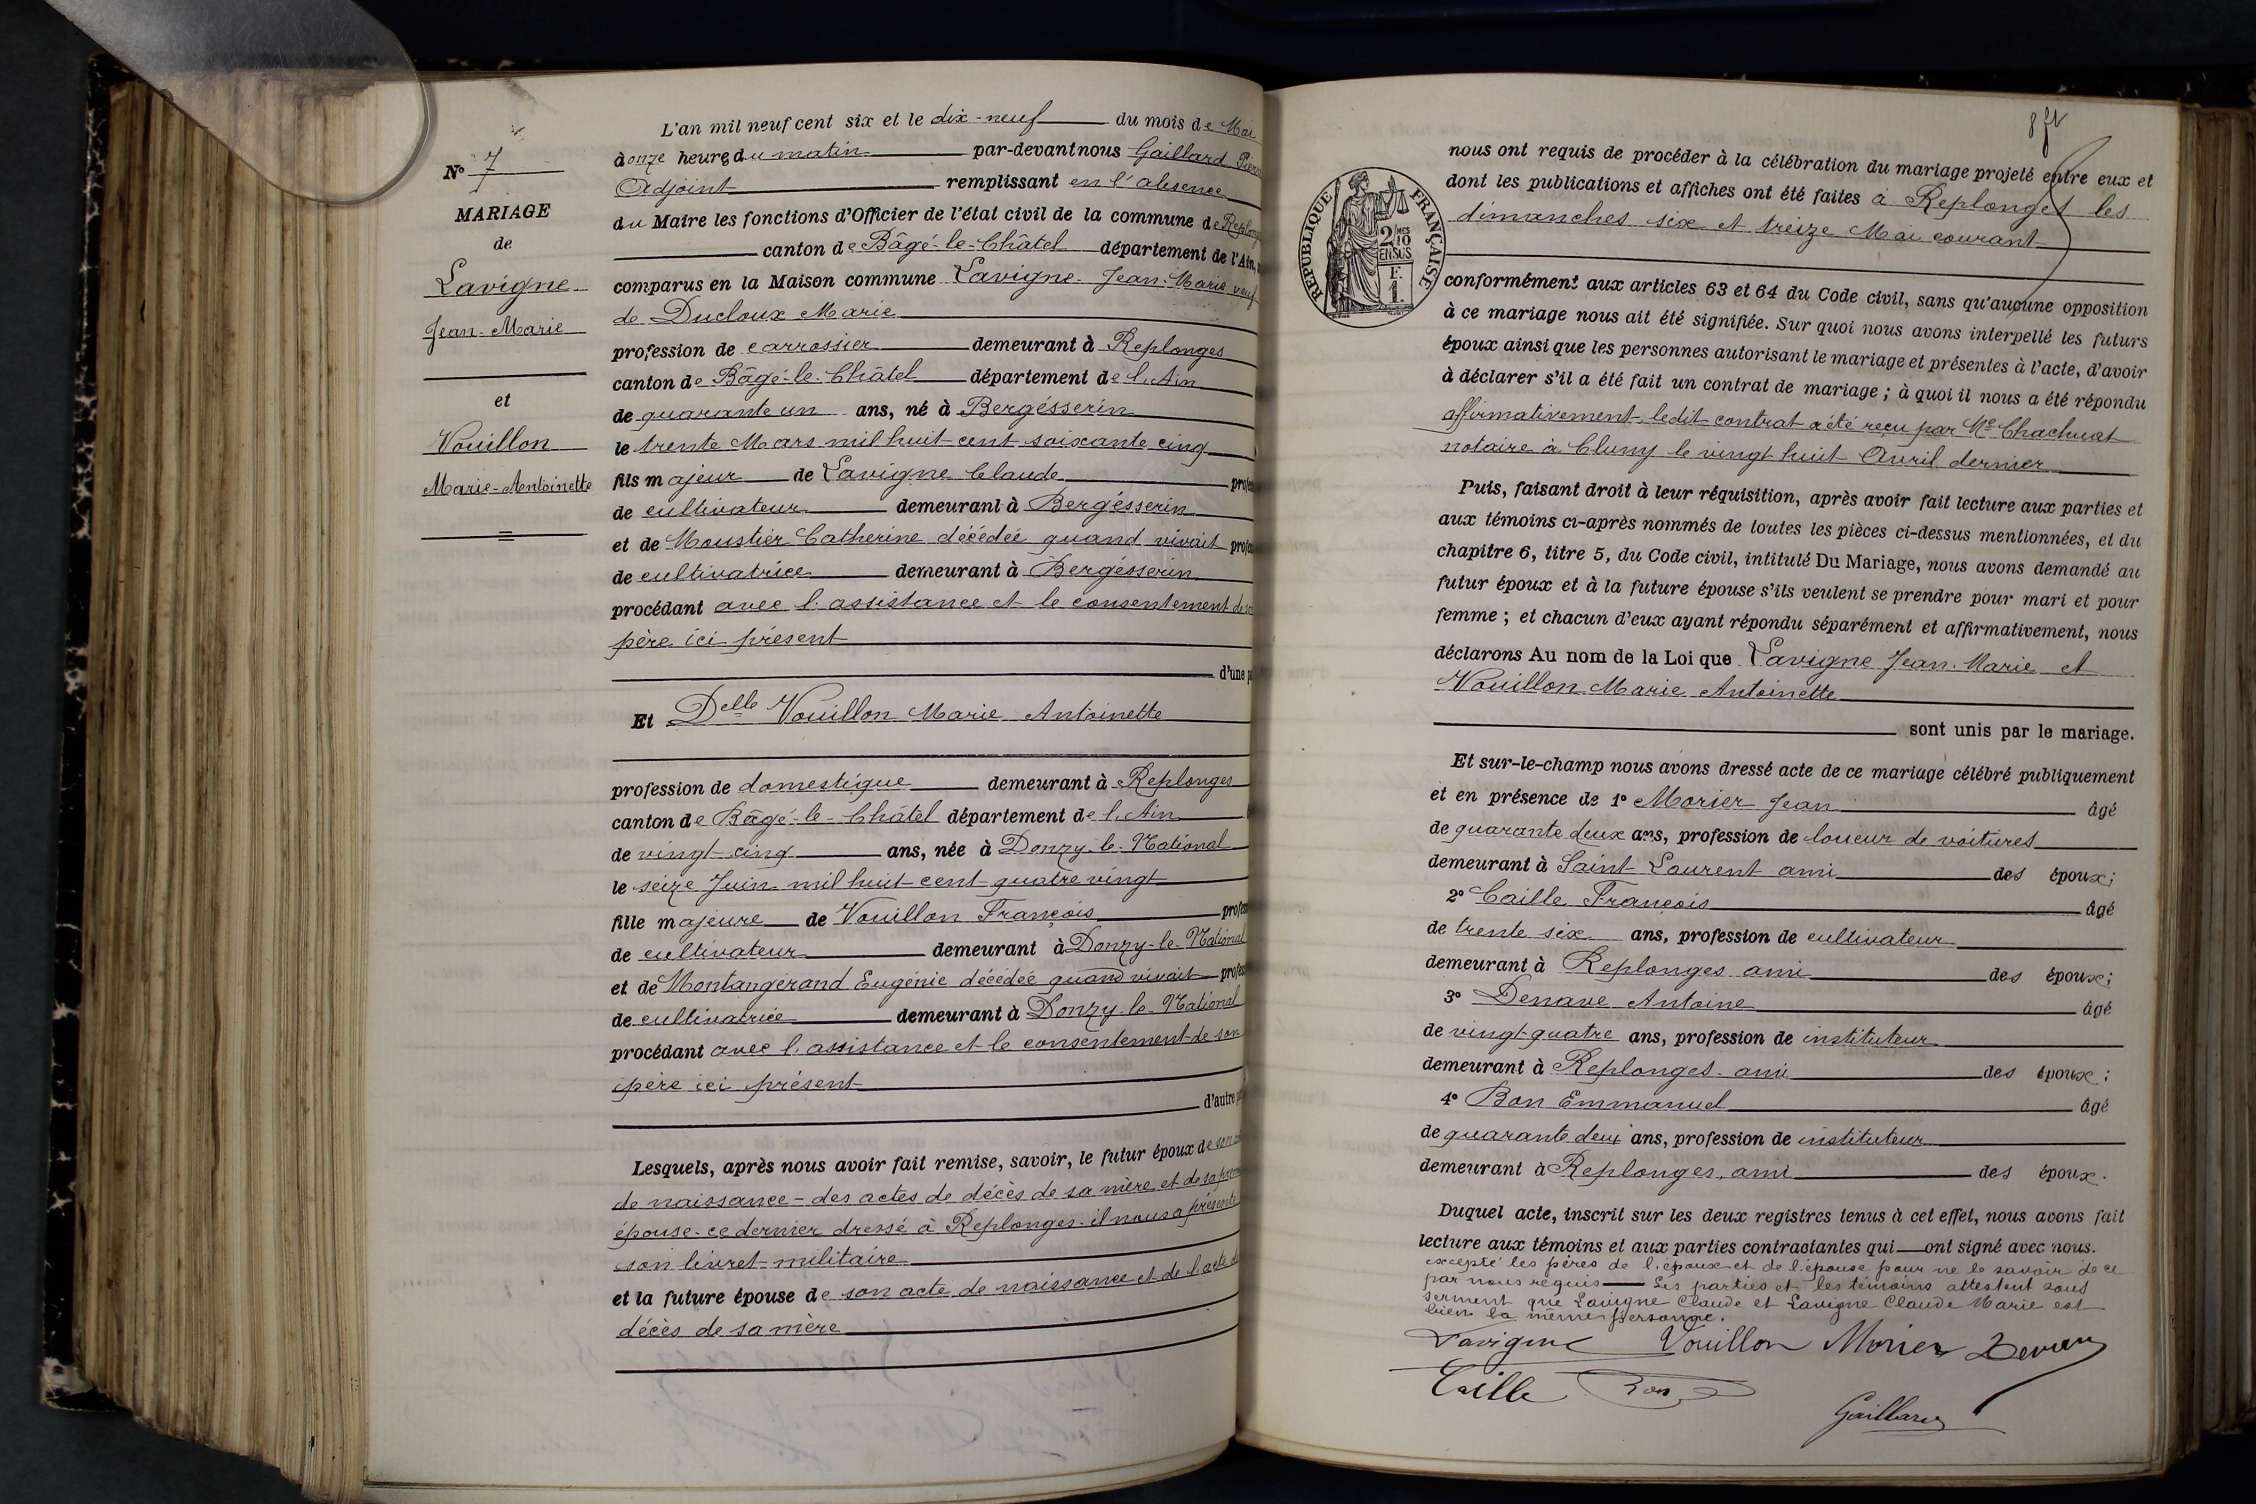 L'an mil neuf cent six et le dix-neuf du mois de Mai
N° 7
à onze heures du matin par-devant nous Gaillard Pierre
Adjoint remplissant en l'absence
MARIAGE
du Maire les fonctions d'Officier de l'état civil de la commune de Replonges
de
canton de Bâgé-le-Châtel département de l'Ain,
Lavigne
comparus en la Maison commune Lavigne Jean-Marie veuf
Jean-Marie
de Ducloux Marie
profession de carrossier demeurant à Replonges
canton de Bâgé-le-Châtel département de l'Ain
et
de quarante un ans, né à Bergésserin
Vouillon
le trente Mars mil huit cent soixante cinq
Marie-Antoinette
fils majeur de Lavigne Claude
de cultivateur demeurant à Bergésserin
et de Moustier Catherine décédée quand vivait
de cultivatrice demeurant à Bergésserin
procédant avec l'assistance et le consentement de son
père ici présent
d'une
Et Delle Vouillon Marie Antoinette
profession de domestique demeurant à Replonges
canton de Bâgé-le-Châtel département de l'Ain
de vingt cinq ans, née à Donzy-le-National
le seize Juin mil huit cent quatre vingt
fille majeure de Vouillon François
de cultivateur demeurant à Donzy-le-National
et de Montangérand Eugénie décédée quand vivait
de cultivatrice demeurant à Donzy-le-National
procédant avec l'assistance et le consentement de son
père ici présent
d'autre
Lesquels, après nous avoir fait remise, savoir, le futur époux de son
de naissance - des actes de décès de sa mère et de sa
épouse - ce dernier dressé à Replonges - il nous a présenté
son livret militaire
et la future épouse de son acte de naissance et de l'acte de
décès de sa mère
8
nous ont requis de procéder à la célébration du mariage projeté entre eux et
dont les publications et affiches ont été faites à Replonges les
dimanches six et treize Mai courant
RÉPUBLIQUE FRANÇAISE
2/10 EN SUS
F.
1.
conformément aux articles 63 et 64 du Code civil, sans qu'aucune opposition
à ce mariage nous ait été signifiée. Sur quoi nous avons interpellé les futurs
époux ainsi que les personnes autorisant le mariage et présentes à l'acte, d'avoir
à déclarer s'il a été fait un contrat de mariage ; à quoi il nous a été répondu
affirmativement, ledit contrat a été reçu par Me Chachuat
notaire à Cluny le vingt huit Avril dernier
Puis, faisant droit à leur réquisition, après avoir fait lecture aux parties et
aux témoins ci-après nommés de toutes les pièces ci-dessus mentionnées, et du
chapitre 6, titre 5, du Code civil, intitulé Du Mariage, nous avons demandé au
futur époux et à la future épouse s'ils veulent se prendre pour mari et pour
femme ; et chacun d'eux ayant répondu séparément et affirmativement, nous
déclarons Au nom de la Loi que Lavigne Jean-Marie et
Vouillon Marie Antoinette
sont unis par le mariage.
Et sur-le-champ nous avons dressé acte de ce mariage célébré publiquement
et en présence de 1° Morier Jean âgé
de quarante deux ans, profession de loueur de voitures
demeurant à Saint Laurent ami des époux ;
2° Caille François âgé
de trente six ans, profession de cultivateur
demeurant à Replonges ami des époux ;
3° Denave Antoine âgé
de vingt quatre ans, profession de instituteur
demeurant à Replonges - ami des époux ;
4° Bon Emmanuel âgé
de quarante deux ans, profession de instituteur
demeurant à Replonges, ami des époux.
Duquel acte, inscrit sur les deux registres tenus à cet effet, nous avons fait
lecture aux témoins et aux parties contractantes qui ont signé avec nous.
excepté les pères de l'époux et de l'épouse pour ne le savoir de ce
par nous requis — Les parties et les témoins attestent sous
serment que Lavigne Claude et Lavigne Claude Marie est
bien la même personne.
Lavigne Vouillon Morier Denave
Caille Bon
Gaillard